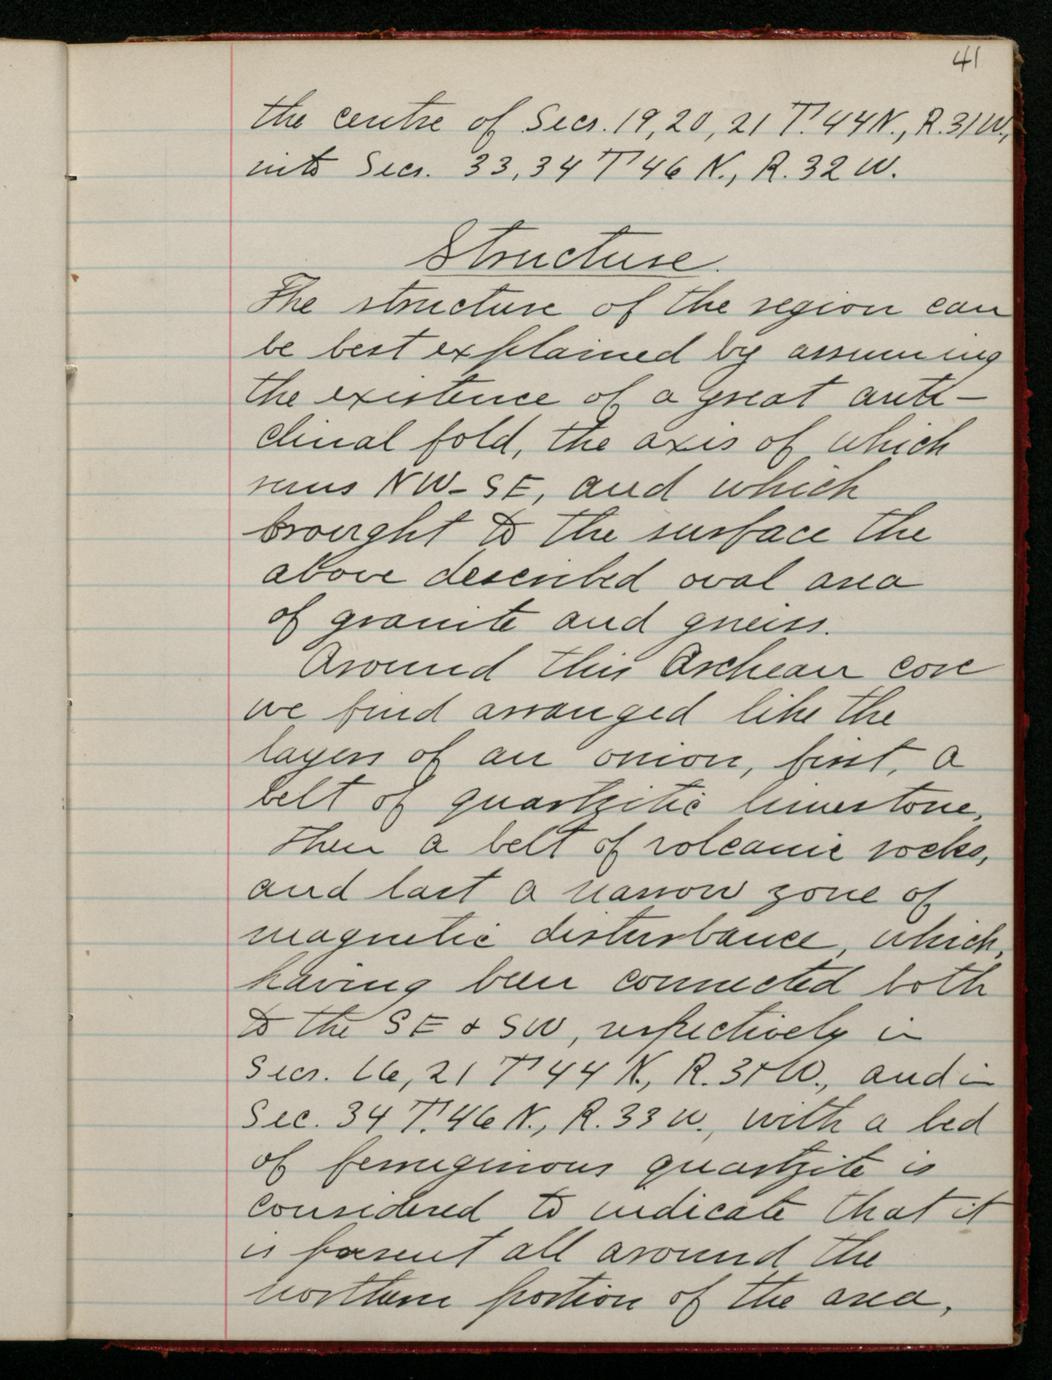 41
the centre of Secs. 19, 20, 21 T. 44 N., R. 31 W.,
into Secs. 33, 34 T 46 N., R. 32 W.
Structure.
The structure of the region can
be best explained by assuming
the existence of a great anti-
clinal fold, the axis of which
runs NW-SE, and which
brought to the surface the
above described oval area
of granite and gneiss.
Around this Archean core
we find arranged like the
layers of an onion, first, a
belt of quartzitic limestone,
then a belt of volcanic rocks,
and last a narrow zone of
magnetic disturbance, which,
having been connected both
to the SE & SW, respectively in
Secs. 16, 21 T 44 N., R. 31 W., and in
Sec. 34 T. 46 N., R. 33 W., with a bed
of ferruginous quartzite is
considered to indicate that it
is present all around the
northern portion of the area,